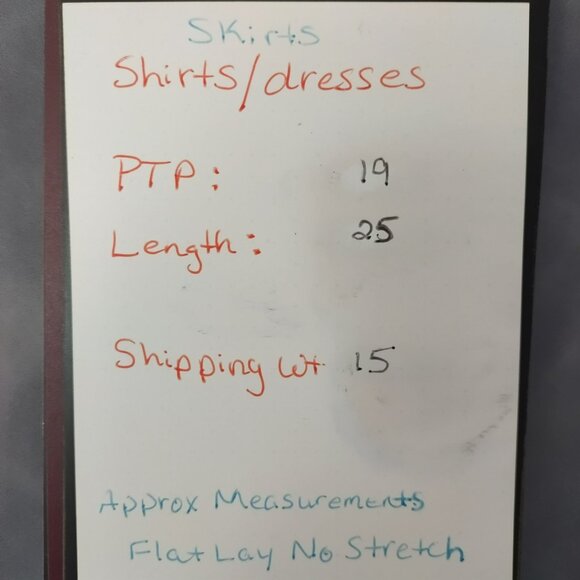 Skirts
Shirts/dresses
PTP: 19
Length: 25
Shipping Wt 15
Approx Measurements
Flat Lay No Stretch